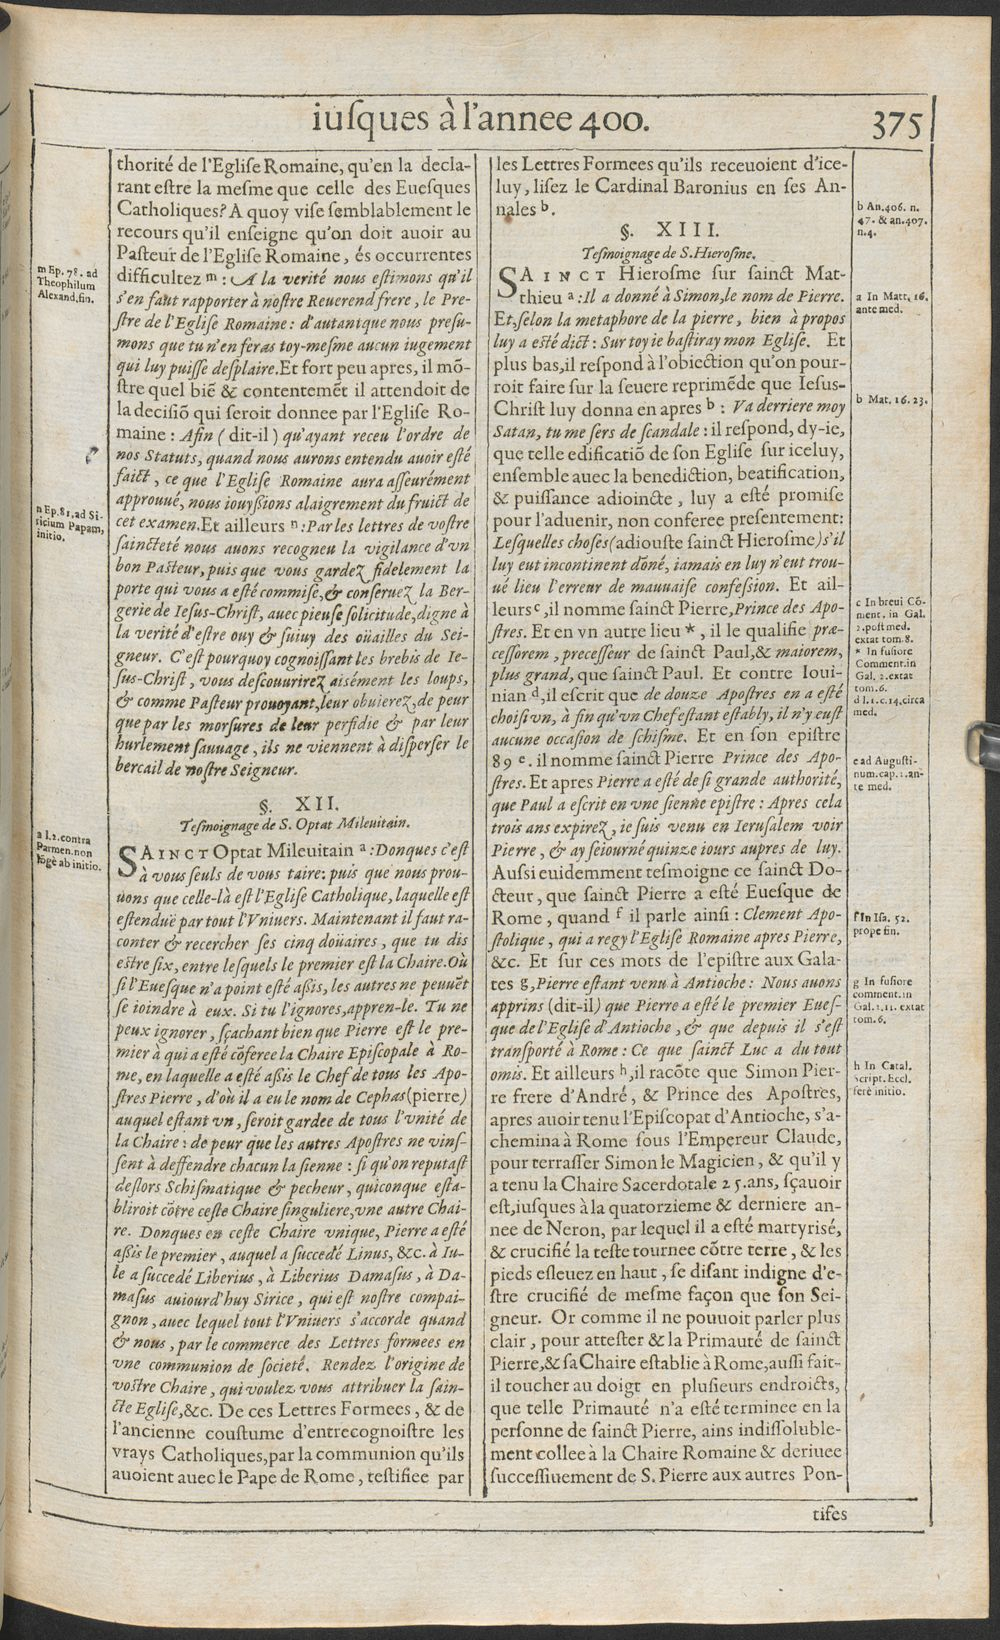 iusques à l'annee 400. 375
thorité de l'Eglise Romaine, qu'en la decla-
rant estre la mesme que celle des Euesques
Catholiques? A quoy vise semblablement le
recours qu'il enseigne qu'on doit auoir au
Pasteur de l'Eglise Romaine, és occurrentes
difficultez m : A la verité nous estimons qu'il
s'en faut rapporter à nostre Reuerend frere, le Pre-
stre de l'Eglise Romaine: d'autant que nous presu-
mons que tu n'en feras toy-mesme aucun iugement
qui luy puisse desplaire. Et fort peu apres, il mõ-
stre quel biẽ & contentemẽt il attendoit de
la decisiõ qui seroit donnee par l'Eglise Ro-
maine : Afin ( dit-il ) qu'ayant receu l'ordre de
nos Statuts, quand nous aurons entendu auoir esté
faict, ce que l'Eglise Romaine aura asseurément
approuué, nous iouyssions alaigrement du fruict de
cet examen. Et ailleurs n : Par les lettres de vostre
saincteté nous auons recogneu la vigilance d'vn
bon Pasteur, puis que vous gardez fidelement la
porte qui vous a esté commise, & conseruez la Ber-
gerie de Iesus-Christ, auec pieuse solicitude, digne à
la verité d'estre ouy & suiuy des oüailles du Sei-
gneur. C'est pourquoy cognoissant les brebis de Ie-
sus-Christ, vous descouurirez aisément les loups,
& comme Pasteur prouoyant, leur obuierez, de peur
que par les morsures de leur perfidie & par leur
hurlement sauuage, ils ne viennent à disperser le
bercail de nostre Seigneur.
§. XII.
Tesmoignage de S. Optat Mileuitain.
SAINCT Optat Mileuitain a : Donques c'est
à vous seuls de vous taire: puis que nous prou-
uons que celle-là est l'Eglise Catholique, laquelle est
estenduë par tout l'Vniuers. Maintenant il faut ra-
conter & recercher ses cinq doüaires, que tu dis
estre six, entre lesquels le premier est la Chaire. Où
si l'Euesque n'a point esté assis, les autres ne peuuẽt
se ioindre à eux. Si tu l'ignores, appren-le. Tu ne
peux ignorer, sçachant bien que Pierre est le pre-
mier à qui a esté cõferce la Chaire Episcopale à Ro-
me, en laquelle a esté assis le Chef de tous les Apo-
stres Pierre, d'où il a eu le nom de Cephas (pierre)
auquel estant vn, seroit gardee de tous l'vnité de
la Chaire : de peur que les autres Apostres ne vins-
sent à deffendre chacun la sienne : si qu'on reputast
deslors Schismatique & pecheur, quiconque esta-
bliroit cõtre ceste Chaire singuliere, vne autre Chai-
re. Donques en ceste Chaire vnique, Pierre a esté
assis le premier, auquel a succedé Linus, &c. à Iu-
le a succedé Liberius, à Liberius Damasus, à Da-
masus auiourd'huy Sirice, qui est nostre compai-
gnon, auec lequel tout l'Vniuers s'accorde quand
& nous, par le commerce des Lettres formees en
vne communion de societé. Rendez l'origine de
vostre Chaire, qui voulez vous attribuer la sain-
cte Eglise, &c. De ces Lettres Formees, & de
l'ancienne coustume d'entrecognoistre les
vrays Catholiques, par la communion qu'ils
auoient auec le Pape de Rome, testifiee par
m Ep. 78. ad
Theophilum
Alexand. fin.
n Ep. 81. ad Si-
ricium Papam,
initio.
a l. 2. contra
Parmen. non
lõgè ab initio.
les Lettres Formees qu'ils receuoient d'ice-
luy, lisez le Cardinal Baronius en ses An-
nales b.
§. XIII.
Tesmoignage de S. Hierosme.
SAINCT Hierosme sur sainct Mat-
thieu a : Il a donné à Simon, le nom de Pierre.
Et, selon la metaphore de la pierre, bien à propos
luy a esté dict : Sur toy ie bastiray mon Eglise. Et
plus bas, il respond à l'obiection qu'on pour-
roit faire sur la seuere reprimẽde que Iesus-
Christ luy donna en apres b : Va derriere moy
Satan, tu me sers de scandale : il respond, dy-ie,
que telle edificatiõ de son Eglise sur iceluy,
ensemble auec la benediction, beatification,
& puissance adioincte, luy a esté promise
pour l'aduenir, non conferee presentement:
Lesquelles choses (adiouste sainct Hierosme) s'il
luy eut incontinent dõné, iamais en luy n'eut trou-
ué lieu l'erreur de mauuaise confession. Et ail-
leurs c, il nomme sainct Pierre, Prince des Apo-
stres. Et en vn autre lieu *, il le qualifie præ-
cessorem, precesseur de sainct Paul, & maiorem,
plus grand, que sainct Paul. Et contre Ioui-
nian d, il escrit que de douze Apostres en a esté
choisi vn, à fin qu'vn Chef estant estably, il n'y eust
aucune occasion de schisme. Et en son epistre
89 e. il nomme sainct Pierre Prince des Apo-
stres. Et apres Pierre a esté de si grande authorité,
que Paul a escrit en vne sienne epistre : Apres cela
trois ans expirez, ie suis venu en Ierusalem voir
Pierre, & ay seiourné quinze iours aupres de luy.
Aussi euidemment tesmoigne ce sainct Do-
cteur, que sainct Pierre a esté Euesque de
Rome, quand f il parle ainsi : Clement Apo-
stolique, qui a regy l'Eglise Romaine apres Pierre,
&c. Et sur ces mots de l'epistre aux Gala-
tes g, Pierre estant venu à Antioche : Nous auons
apprins (dit-il) que Pierre a esté le premier Eues-
que de l'Eglise d'Antioche, & que depuis il s'est
transporté à Rome : Ce que sainct Luc a du tout
omis. Et ailleurs h, il racõte que Simon Pier-
re frere d'André, & Prince des Apostres,
apres auoir tenu l'Episcopat d'Antioche, s'a-
chemina à Rome sous l'Empereur Claude,
pour terrasser Simon le Magicien, & qu'il y
a tenu la Chaire Sacerdotale 25. ans, sçauoir
est, iusques à la quatorzieme & derniere an-
nee de Neron, par lequel il a esté martyrisé,
& crucifié la teste tournee cõtre terre, & les
pieds esleuez en haut, se disant indigne d'e-
stre crucifié de mesme façon que son Sei-
gneur. Or comme il ne pouuoit parler plus
clair, pour attester & la Primauté de sainct
Pierre, & sa Chaire establie à Rome, aussi fait-
il toucher au doigt en plusieurs endroicts,
que telle Primauté n'a esté terminee en la
personne de sainct Pierre, ains indissoluble-
ment collee à la Chaire Romaine & deriuee
successiuement de S. Pierre aux autres Pon-
tifes
b An. 406. n.
47. & an. 407.
n. 4.
a In Matt. 16.
ante med.
b Mat. 16. 23.
c In breui Cõ-
ment. in Gal.
2. post med.
extat tom. 8.
* In fusiore
Comment. in
Gal. 2. extat
tom. 6.
d l. 1. c. 14. circa
med.
e ad Augusti-
num. cap. 2. an-
te med.
f In Isa. 52.
prope fin.
g In fusiore
comment. in
Gal. 2. 11. extat
tom. 6.
h In Catal.
Script. Eccl.
ferè initio.